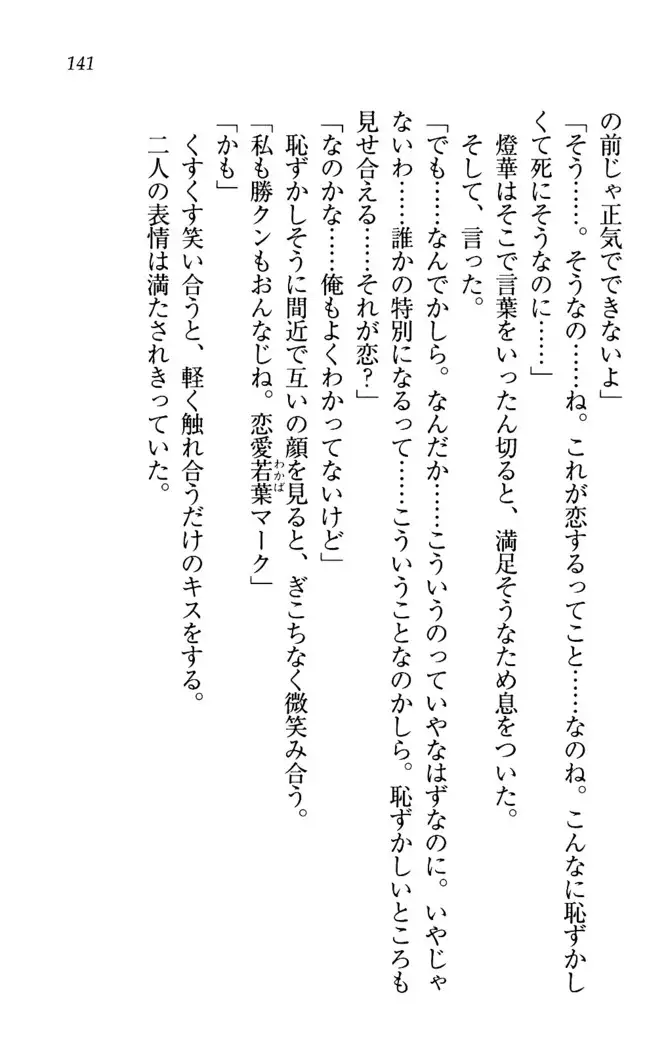 141
の前じゃ正気でできないよ」
「そう……。そうなの……ね。これが恋するってこと……なのね。こんなに恥ずかし
くて死にそうなのに……」
燈華はそこで言葉をいったん切ると、満足そうなため息をついた。
そして、言った。
「でも……なんでかしら。なんだか……こういうのっていやなはずなのに。いやじゃ
ないわ……誰かの特別になるって……こういうことなのかしら。恥ずかしいところも
見せ合える……それが恋?」
「なのかな……俺もよくわかってないけど」
恥ずかしそうに間近で互いの顔を見ると、ぎこちなく微笑み合う。
「私も勝クンもおんなじね。恋愛若葉わかばマーク」
「かも」
くすくす笑い合うと、軽く触れ合うだけのキスをする。
二人の表情は満たされきっていた。